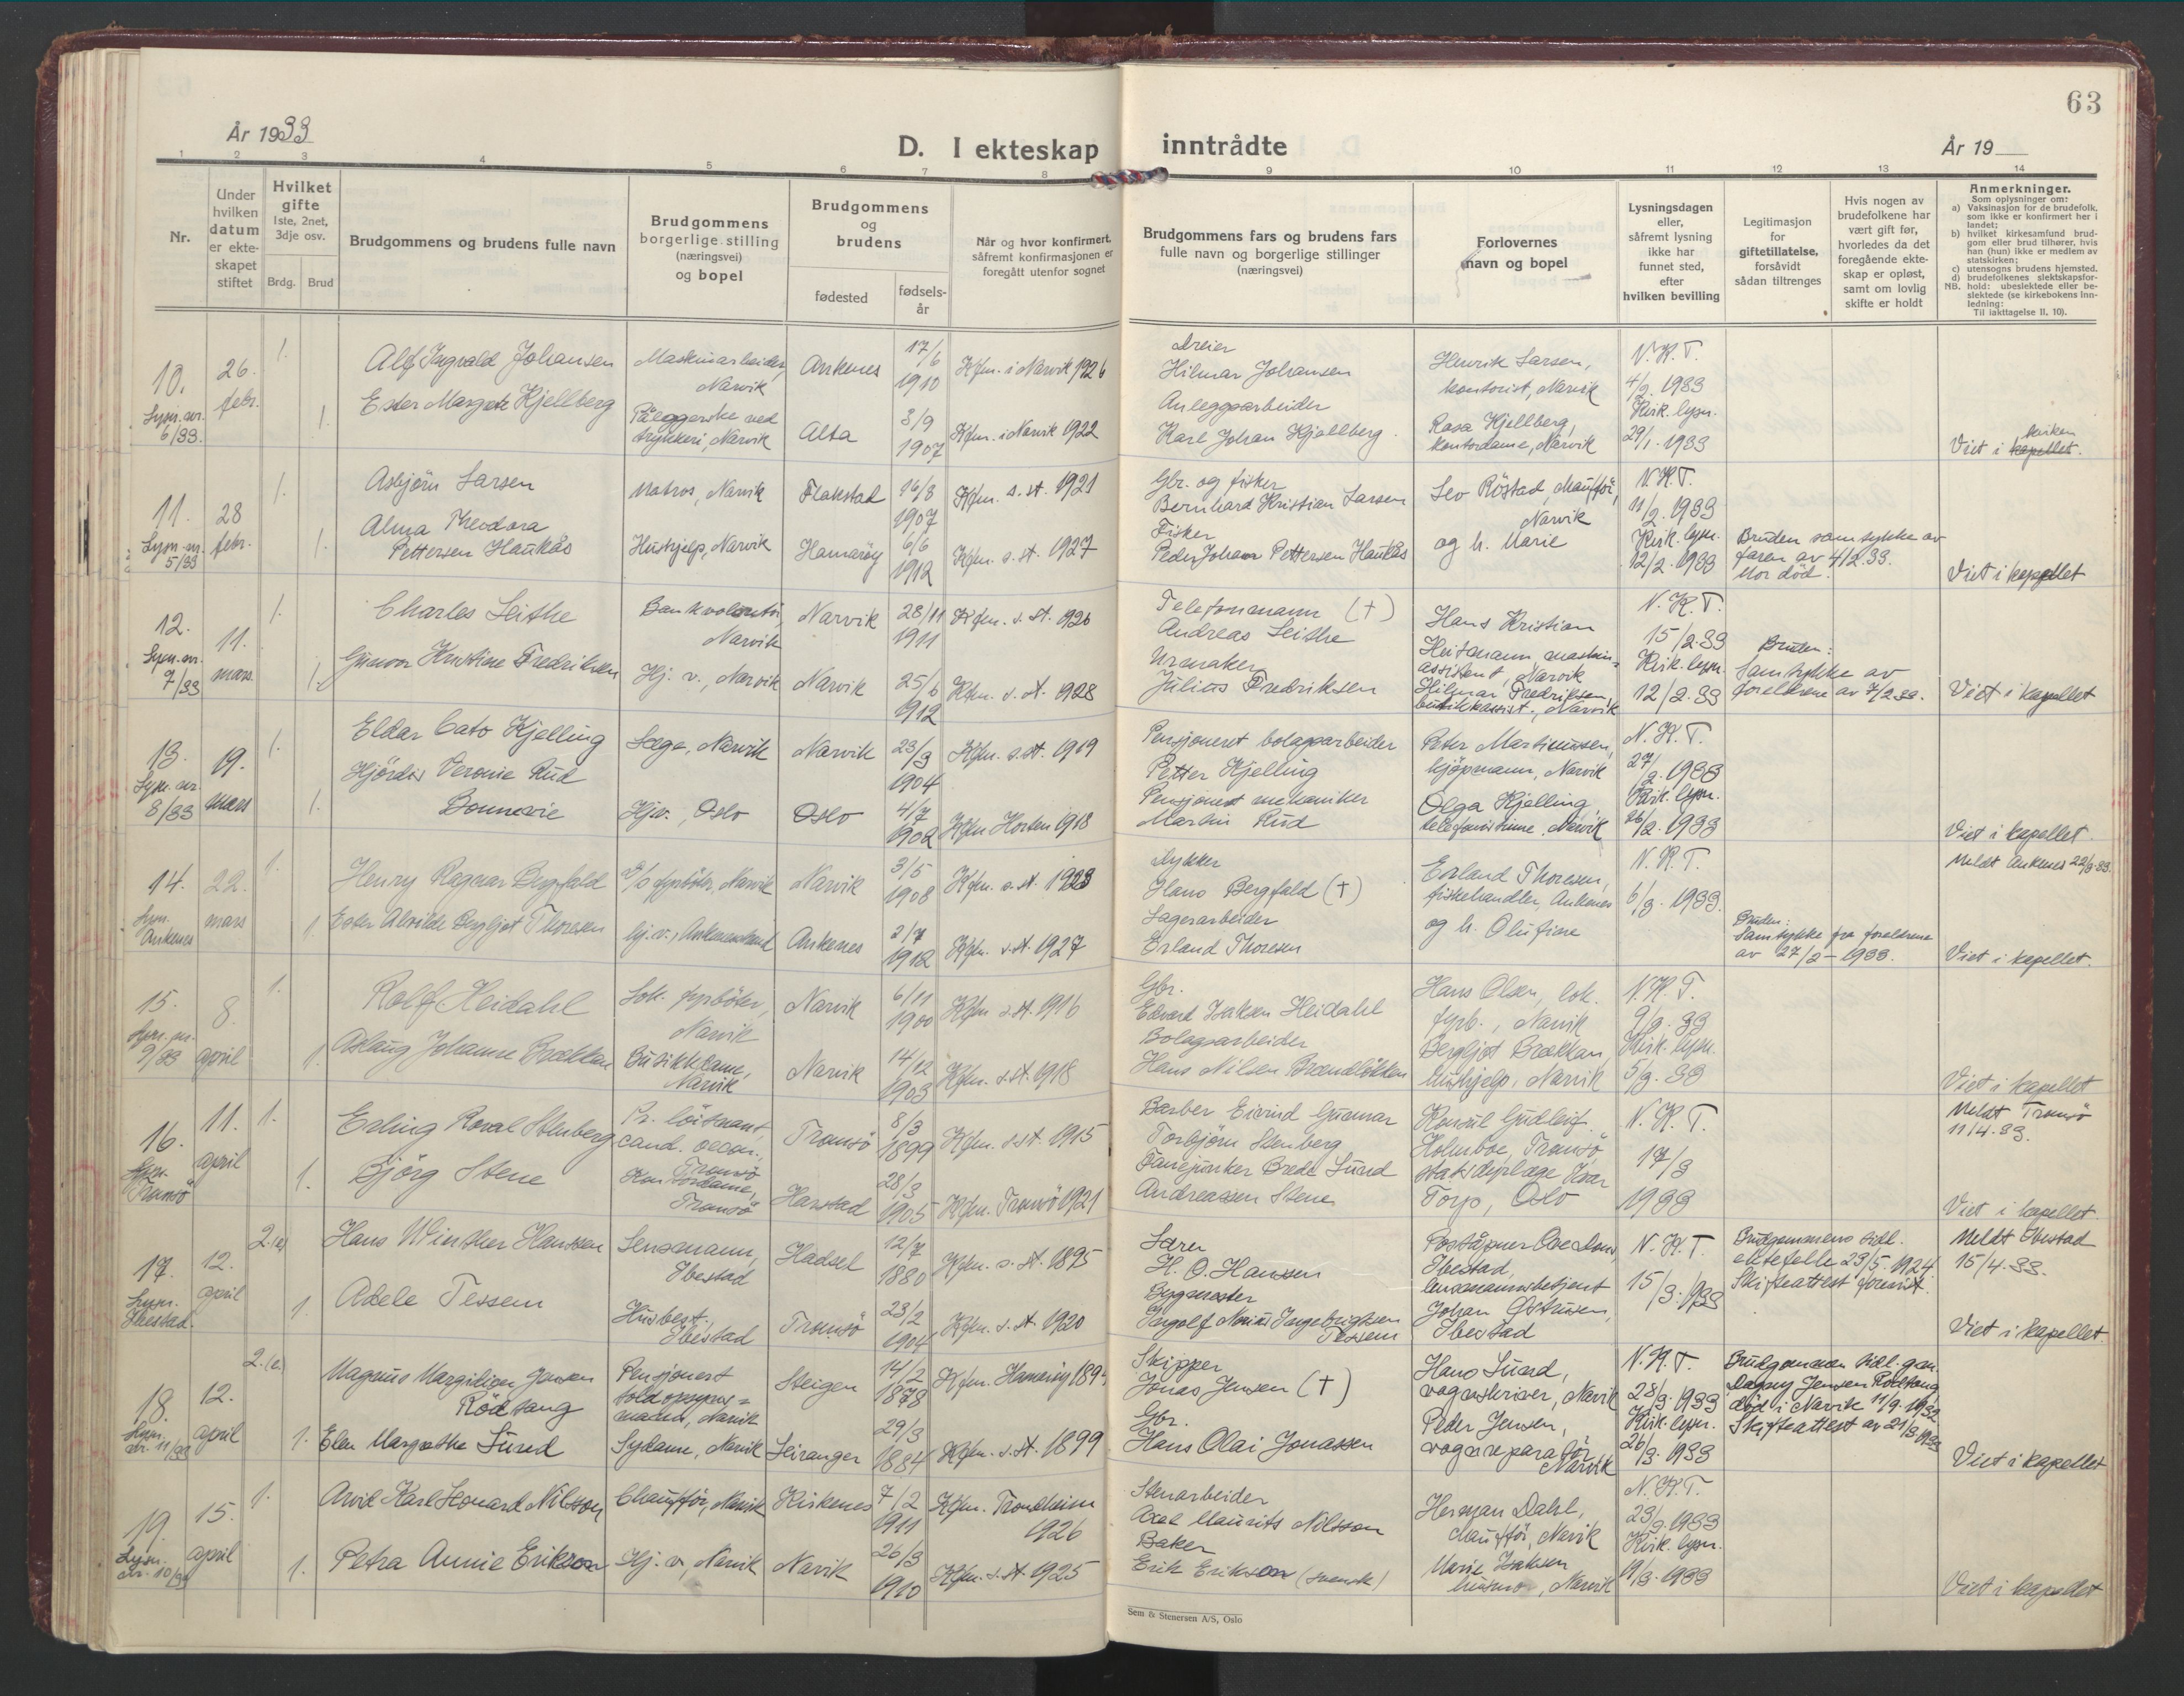 63
År 1933
D. I ekteskap inntrådte
År 19
1 2 3 4 5 6 7 8 9 10 11 12 13 14
Nr.
Under
hvilken
datum
er ekte-
skapet
stiftet
Hvilket
gifte
1ste, 2net,
3dje osv.
Brdg. Brud
Brudgommens og brudens fulle navn
Brudgommens
borgerlige stilling
(næringsvei)
og bopel
Brudgommens
og
brudens
fødested
fødsels-
år
Når og hvor konfirmert,
såfremt konfirmasjonen er
foregått utenfor sognet
Brudgommens fars og brudens fars
fulle navn og borgerlige stillinger
(næringsvei)
Forlovernes
navn og bopel
Lysningsdagen
eller,
såfremt lysning
ikke har
funnet sted,
efter
hvilken bevilling
Legitimasjon
for
giftetillatelse,
forsåvidt
sådan tiltrenges
Hvis nogen av
brudefolkene har
vært gift før,
hvorledes da det
foregående ekte-
skap er opløst,
samt om lovlig
skifte er holdt
Anmerkninger.
Som oplysninger om:
a) Vaksinasjon for de brudefolk,
som ikke er konfirmert her i
landet;
b) hvilket kirkesamfund brud-
gom eller brud tilhører, hvis
han (hun) ikke er medlem av
statskirken;
c) utensogns brudens hjemsted.
d) brudefolkenes slektskapsfor-
NB. hold: ubeslektede eller be-
slektede (se kirkebokens inn-
ledning:
Til iakttagelse II, 10).
10.
Lysn. nr.
6/33.
26.
febr.
1.
1.
Alf Ingvald Johansen
Ester Margrete Kjellberg
Maskinarbeider,
Narvik
Påleggerske ved
trykkeri, Narvik
Ankenes
Alta
17/6
1910
3/9
1907
Kfm. i Narvik 1926
Kfm. i Narvik 1922
Dreier
Hilmar Johansen
Anleggsarbeider
Karl Johan Kjellberg
Henrik Larsen,
kontorist, Narvik
Rosa Kjellberg,
kontordame, Narvik
N.K.T.
4/2. 1933
Kirk. lysn.
29/1. 1933
kirken
Viet i kapellet.
11.
Lysn. nr.
5/33
28
febr.
1.
1.
Asbjörn Larsen
Alma Theodora
Pettersen Haukås
Matros, Narvik
Hushjelp, Narvik
Flakstad
Hamaröy
16/8
1907
6/6
1912
Kfm. s. st. 1921
Kfm. s. st. 1927
Gbr. og fisker
Bernhard Kristian Larsen
Fisker
Peder Johan Pettersen Haukås
Leo Röstad, chaufför,
Narvik
og h. Marie
N.K.T.
11/2. 1933
Kirk. lysn.
12/2. 1933
Bruden samtykke av
faren av 4/2.33.
Mor död.
Viet i kapellet
12.
Lysn. nr.
7/33
11.
mars
1.
1.
Charles Leithe
Gunvor Kristine Fredriksen
Bankvolontör,
Narvik
Hj. v., Narvik
Narvik
Narvik
28/11
1911
25/6
1912
Kfm. s. st. 1926
Kfm. s. st. 1928
Telefonmann (†)
Andreas Leithe
Urmaker
Julius Fredriksen
Hans Kristian
Heitmann maskin-
assistent, Narvik
Hilmar Fredriksen,
butikkassist., Narvik
N.K.T.
15/2.33
Kirk. lysn.
12/2.33
Bruden:
Samtykke av
foreldrene av 7/2.33.
Viet i kapellet
13.
Lysn. nr.
8/33
19.
mars
1.
1.
Eldar Cato Kjelling
Hjördis Veronie Rud
Bonnevie
Læge, Narvik
Hj.v., Oslo
Narvik
Oslo
23/3
1904
4/7
1902
Kfm. s.st. 1919
Kfm Horten 1918
Pensjoneret bolagsarbeider
Petter Kjelling
Pensjonert mekaniker
Martin Rud
Peter Martinussen,
kjöpmann, Narvik
Olga Kjelling,
telefonistinne, Narvik
N.K.T.
27/2.1933
Kirk. lysn.
26/2. 1933
Viet i kapellet
14.
Lysn.
Ankenes
22.
mars
1.
1.
Henry Ragnar Bergfald
Ester Alvilde Bergljot Thoresen
E/S fyrböter, Narvik
hj.v., Ankenesstrand
Narvik
Ankenes
3/5
1908
3/7
1912
Kfm. s. st. 1923
Kfm. s.st. 1927
Dykker
Hans Bergfald (†)
Lagerarbeider
Erland Thoresen
Erland Thoresen,
fiskehandler, Ankenes
og h. Olufine
N.K.T.
6/3. 1933.
Bruden:
Samtykke fra foreldrene
av 27/2 - 1933.
Meldt Ankenes 22/3.33.
Viet i kapellet.
15.
Lysn. nr.
9/33
8.
april
1.
1.
Rolf Heidahl
Aslaug Johanne Brækkan
Lok. fyrböter,
Narvik
Butikkdame,
Narvik
Narvik
Narvik
6/11
1900
14/12
1903
Kfm s.st. 1916
Kfm. s.st. 1918
Gbr.
Edvard Isaksen Heidahl
Bolagsarbeider
Hans Nilsen Brændlökken
Hans Olsen, lok.
fyrb., Narvik
Bergljot Brækkan,
hushjelp, Narvik
N.K.T.
9/3. 33
Kirk. lysn.
5/3. 33
Viet i kapellet
16.
Lysn.
Tromsö
11.
april
1.
1.
Erling Roval Stenberg
Björg Stene
Pr. löitnant,
cand. oecon.,
Tromsö
Kontordame,
Tromsö
Tromsö
Harstad
8/3
1899
28/3
1905
Kfm. s.st. 1915
Kfm. Tromsö 1921
Barber Eivind Gunnar
Torbjörn Stenberg
Fanejunker Brede Lund
Andreassen Stene
Konsul Gudleif
Holmboe, Tromsö
statsdyrlæge Ivar
Torp, Oslo
N.K.T.
17/3
1933
Meldt Tromsö
11/4.33.
Viet i kapellet
17.
Lysn.
Ibestad.
12.
april
2.(e)
1.
Hans Winther Hanssen
Adele Tessem
Lensmann,
Ibestad
Husbest.
Ibestad
Hadsel
Tromsö
12/7
1880
23/2
1904
Kfm. s. st. 1895
Kfm. s. st. 1920
Lærer
H. O. Hanssen
Byggmester
Ingolf Ingebrigtsen
Tessem
Poståpner
Ibestad,
lensmannsbetjent
Johan
Ibestad
N.K.T.
15/3. 1933
Brudgommens tidl.
ektefelle 23/5.1924
Skifteattest forevist.
Meldt Ibestad
15/4.33.
Viet i kapellet.
18.
Lysn.
nr. 11/33
12.
april
2.(e)
1.
Magnus Jensen
Rödsang
Elen Margrethe Lund
Pensjonert
toldopsyns-
mann, Narvik
Sydame, Narvik
Steigen
Leiranger
14/2
1878
29/3
1884
Kfm. Hamaröy
Kfm. s.st. 1899
Skipper
Jonas Jensen (†)
Gbr.
Hans Olai Jonassen
Hans Lund,
vognskriver, Narvik
Peder Jensen,
vognreparatör
Narvik
N.K.T.
28/3. 1933
Kirk. lysn.
26/3. 1933
Brudgommen tidl. g.m.
Dagny Jensen Rödsang
död i Narvik 11/9.1932
Skifteattest av 21/3.1933
Viet i kapellet
19.
Lysn.
nr. 10/33
15.
april
1.
1.
Arvid Karl Leonard Nilsson
Petra Annie Erikson
Chaufför, Narvik
Hj. v, Narvik
Kirkenes
Narvik
7/2
1911
26/3
1910
Kfm. Trondheim
1926
Kfm. s. st. 1925
Stenarbeider
Axel Maurits Nilsson
Baker
Erik Erikson (svensk)
Herman Dahl,
chaufför, Narvik
Marie Isaksen
husmor, Narvik
N.K.T.
23/3.1933
Kirk. lysn.
19/3.1933
Viet i kapellet
Sem & Stenersen A/S, Oslo